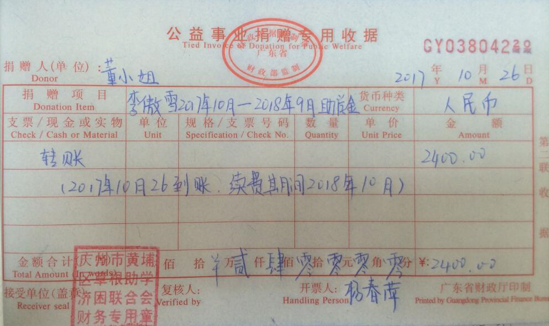 公益事业捐赠专用收据
Tied Invoice of Donation for Public Welfare
广东省
财政部监制
GY03804222
捐赠人(单位) 董小姐 2017年 10月 26日
Donor Y M D
捐赠项目 李傲雪2017年10月—2018年9月助学金 货币种类 人民币
Donation Item Currency
支票/现金或实物 单位 规格/支票号码 数量 单价 金额
Check / Cash or Material Unit Specification / Check No. Quantity Unit Price Amount
转账 2400.00
(2017年10月26到账、续费期间2018年10月)
第二联 收据
金额合计 佰 拾 万 贰仟 肆佰 零拾 零元 零角 零分 ¥:2400.00
Total Amount
接受单位(盖章) 复核人: 开票人: 杨春萍 广东省财政厅印制
Receiver Unit (seal) Verified by Handling Person Printed by Guangdong Provincial Finance
市黄埔
区草根助学
济困联合会
财务专用章